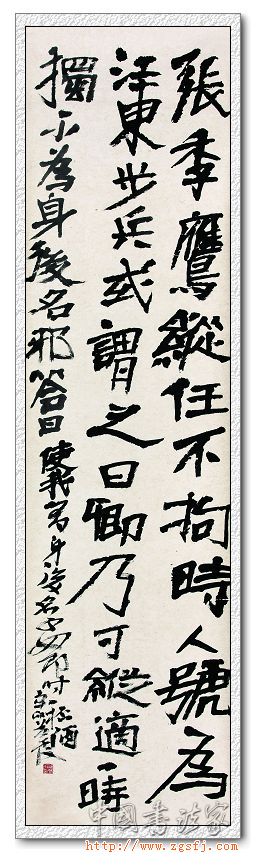 張季鷹縱任不拘時人號為
江東步兵或謂之曰卿乃可縱適一時
獨不為身後名邪答曰使我有身後名不如即時一杯酒
中国书法家
www.zgsfj.com